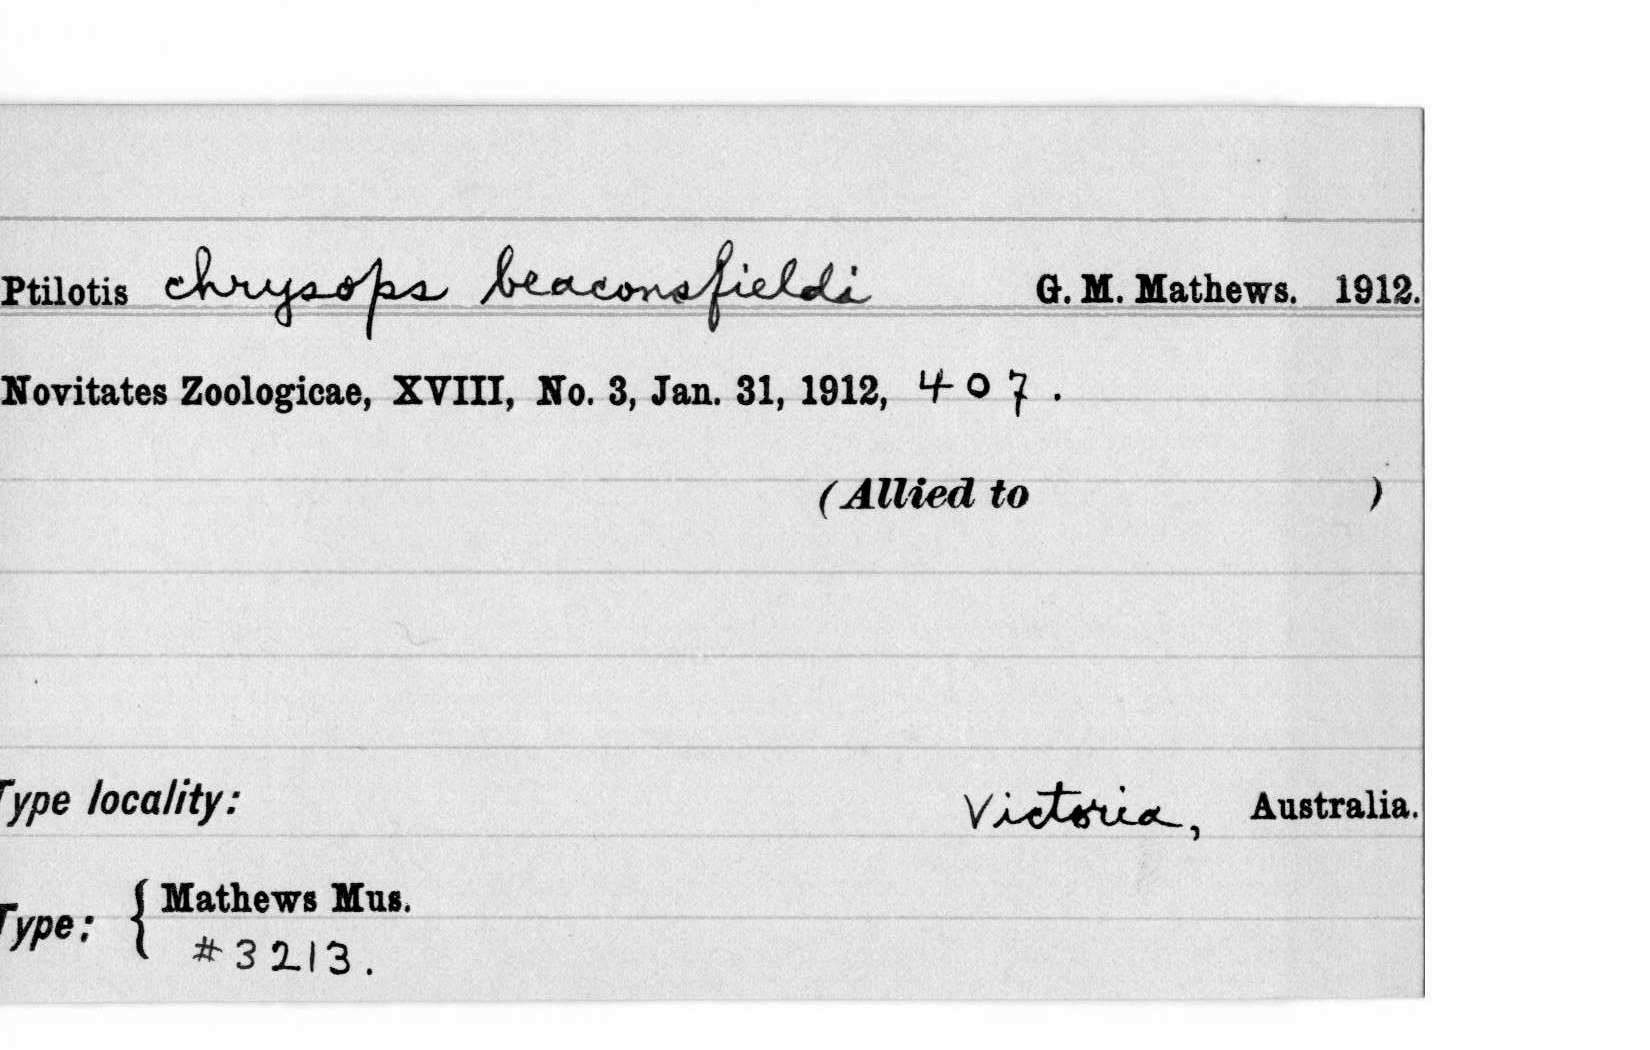 Ptilotis chrysops beaconsfieldi G. M. Mathews. 1912.
Novitates Zoologicae, XVIII, No. 3, Jan. 31, 1912, 407.
(Allied to )
Type locality: Victoria, Australia.
Type: { Mathews Mus.
#3213.